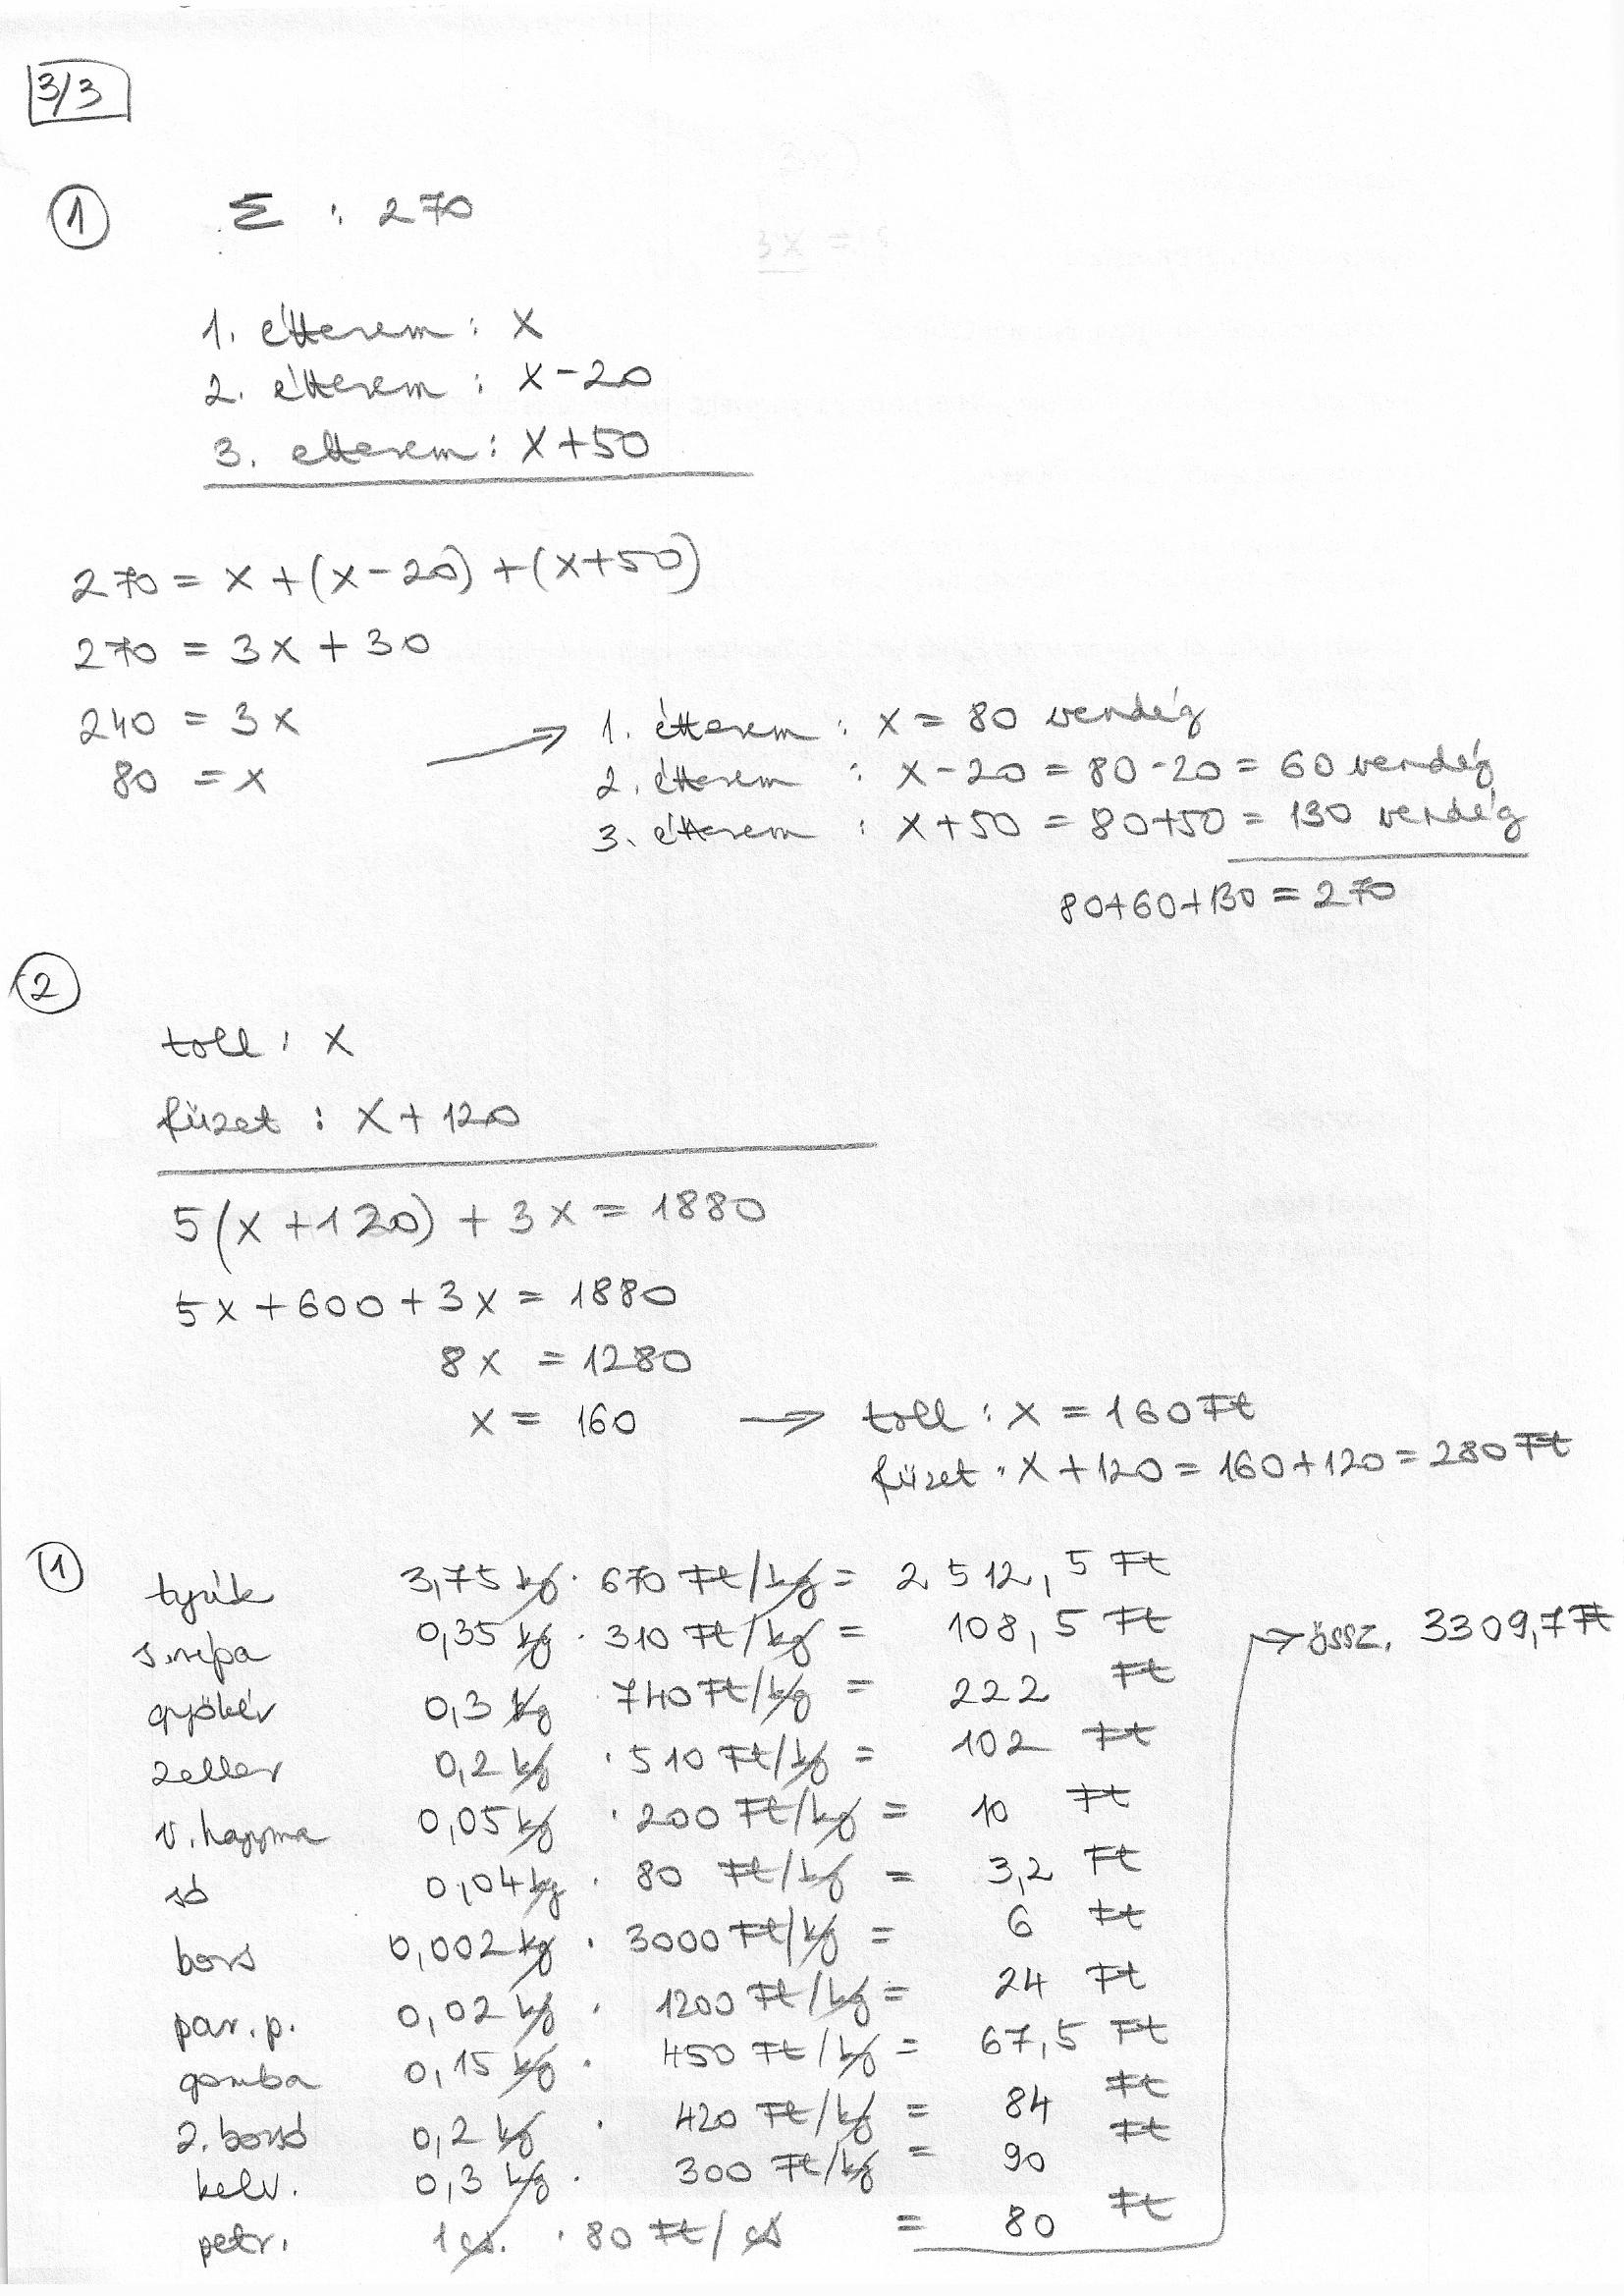 3/3
1
Σ : 270
1. étterem : x
2. étterem : x-20
3. etterem : x+50
270 = x + (x-20) + (x+50)
270 = 3x + 30
240 = 3x
80 = x
→ 1. étterem : x = 80 vendég
2. étterem : x-20 = 80-20 = 60 vendég
3. étterem : x+50 = 80+50 = 130 vendég
80+60+130 = 270
2
toll : x
füzet : x+120
5(x+120) + 3x = 1880
5x+600+3x = 1880
8x = 1280
x = 160 → toll : x = 160 Ft
füzet : x+120 = 160+120 = 280 Ft
1
tyúk 3,75 kg · 670 Ft/kg = 2 512,5 Ft
s.répa 0,35 kg · 310 Ft/kg = 108,5 Ft → össz. 3309,7 Ft
gyökér 0,3 kg · 740 Ft/kg = 222 Ft
zeller 0,2 kg · 510 Ft/kg = 102 Ft
v.hagyma 0,05 kg · 200 Ft/kg = 10 Ft
só 0,04 kg · 80 Ft/kg = 3,2 Ft
bors 0,002 kg · 3000 Ft/kg = 6 Ft
par.p. 0,02 kg · 1200 Ft/kg = 24 Ft
gomba 0,15 kg · 450 Ft/kg = 67,5 Ft
z.borsó 0,2 kg · 420 Ft/kg = 84 Ft
kelv. 0,3 kg · 300 Ft/kg = 90 Ft
petr. 1 cs. · 80 Ft/cs = 80 Ft